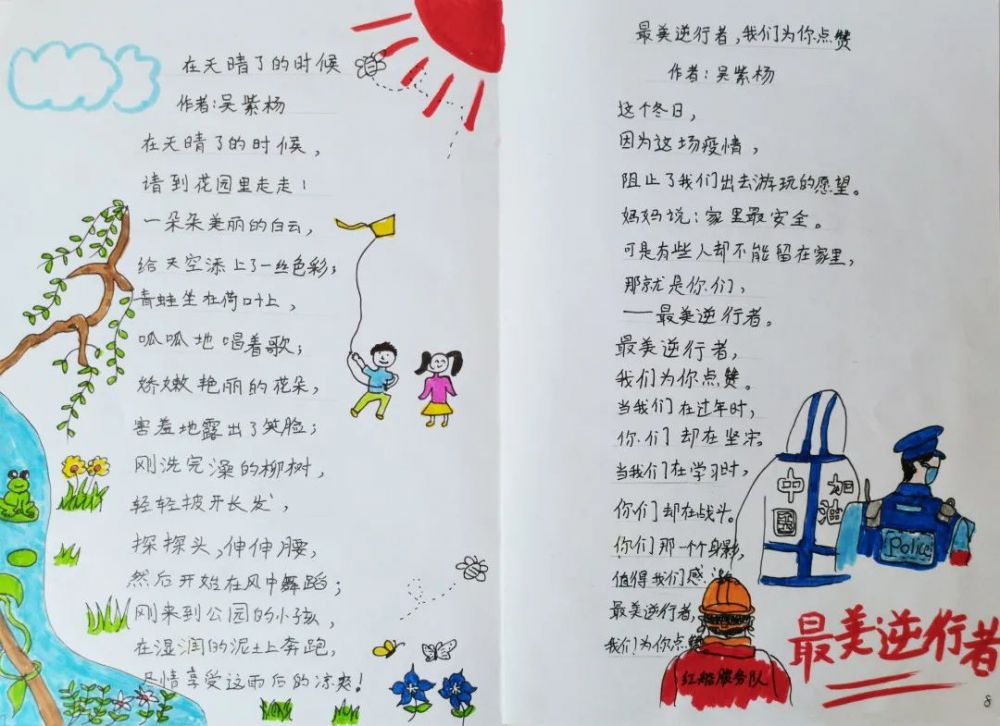 在天晴了的时候
作者:吴紫杨
在天晴了的时候，
请到花园里走走！
一朵朵美丽的白云，
给天空添上了一丝色彩；
青蛙坐在荷叶上，
呱呱地唱着歌；
娇嫩艳丽的花朵，
害羞地露出了笑脸；
刚洗完澡的柳树，
轻轻披开长发，
探探头，伸伸腰，
然后开始在风中舞蹈；
刚来到公园的小孩，
在湿润的泥土上奔跑，
尽情享受这雨后的凉爽！
最美逆行者，我们为你点赞
作者：吴紫杨
这个冬日，
因为这场疫情，
阻止了我们出去游玩的愿望。
妈妈说：家里最安全。
可是有些人却不能留在家里，
那就是你们，
——最美逆行者。
最美逆行者，
我们为你点赞。
当我们在过年时，
你们却在坚守。
当我们在学习时，
你们却在战斗。
你们那一个个身影，
值得我们感
最美逆行者，
我们为你点赞
中国
加油
Police
红船服务队
最美逆行者
8